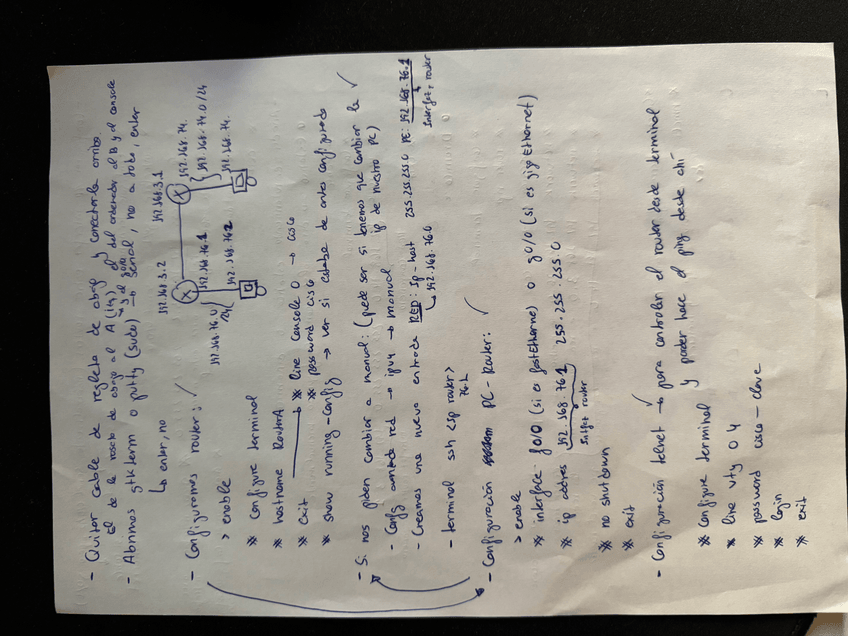 - Quitar cable de regleta de abajo y conectarla arriba.
el de la roseta de abajo al A (lig) el del ordenador al B y el console
y el gris
- Abrimos gtkterm o putty (sudo) → serial, no a todo, enter
↳ enter, no
192.168.3.2 192.168.3.1
192.168.76.1 192.168.74.
192.168.74.0/24
192.168.76.0
/24
192.168.76.2 192.168.74.
- Configuramos router: ✓
> enable
* configure terminal
* hostname RouterA
* exit → * line console 0 → cisco
* password cisco
* show running-config → ver si estaba de antes configurado
- Si nos piden cambiar a manual: (puede ser si tenemos que cambiar la ✓
ip de nuestro PC)
- Config. red → ipv4 → manual
- Creamos una nueva entrada RED: ip-host 255.255.255.0 PE: 192.168.76.1
↳ 192.168.76.0 Interfaz router
- terminal ssh <ip router>
76.1
- Configuración PC - Router: ✓
> enable
* interface f0/0 (si es fastEthernet) o g0/0 (si es gigEthernet)
* ip address 192.168.76.1 255.255.255.0
router
* no shutdown
* exit
- Configuración telnet → para controlar el router desde terminal
y poder hacer el ping desde ahí
* configure terminal
* line vty 0 4
* password cisco - clave
* login
* exit